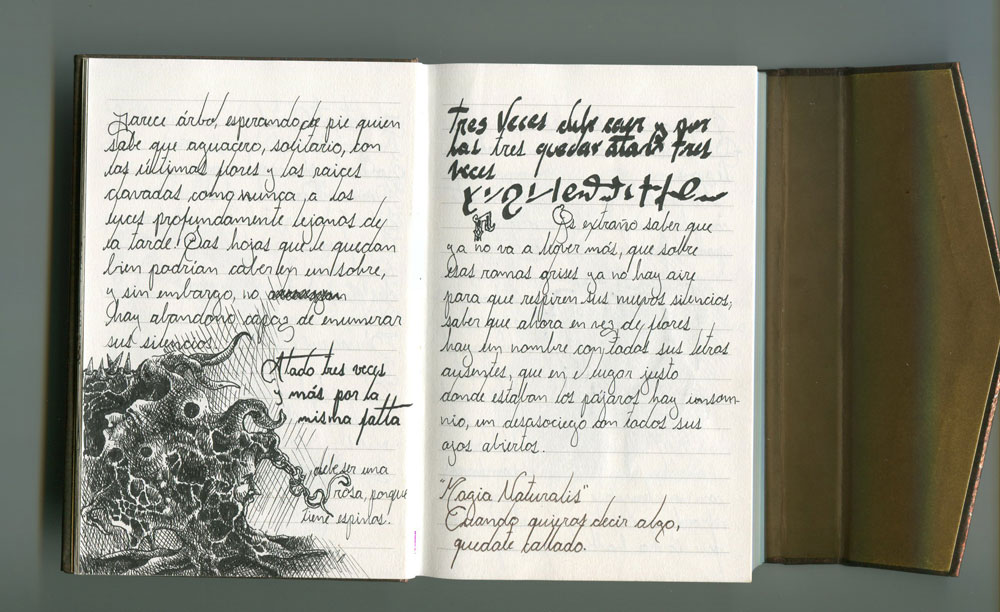 Parece árbol, esperando de pie quien
sabe que aguacero, solitario, con
las últimas flores y las raices
clavadas como nunca, a las
luces profundamente lejanas de
la tarde. Las hojas que le quedan
bien podrían caber en un sobre,
y sin embargo, no
hay abandono capaz de enumerar
sus silencios.
Atado tres veces
y más por la
misma falta
debe ser una
rosa, porque
tiene espinas.
Tres veces debe caer y por
las tres quedar atado tres
veces
Es extraño saber que
ya no va a llover más, que sobre
esas ramas grises ya no hay aire
para que respiren sus nuevos silencios;
saber que ahora en vez de flores
hay un nombre con todas sus letras
ausentes, que en el lugar justo
donde estaban los pájaros hay insom-
nio, un desasociego con todos sus
ojos abiertos.
"Magia Naturalis"
Cuando quieras decir algo,
quedate callado.